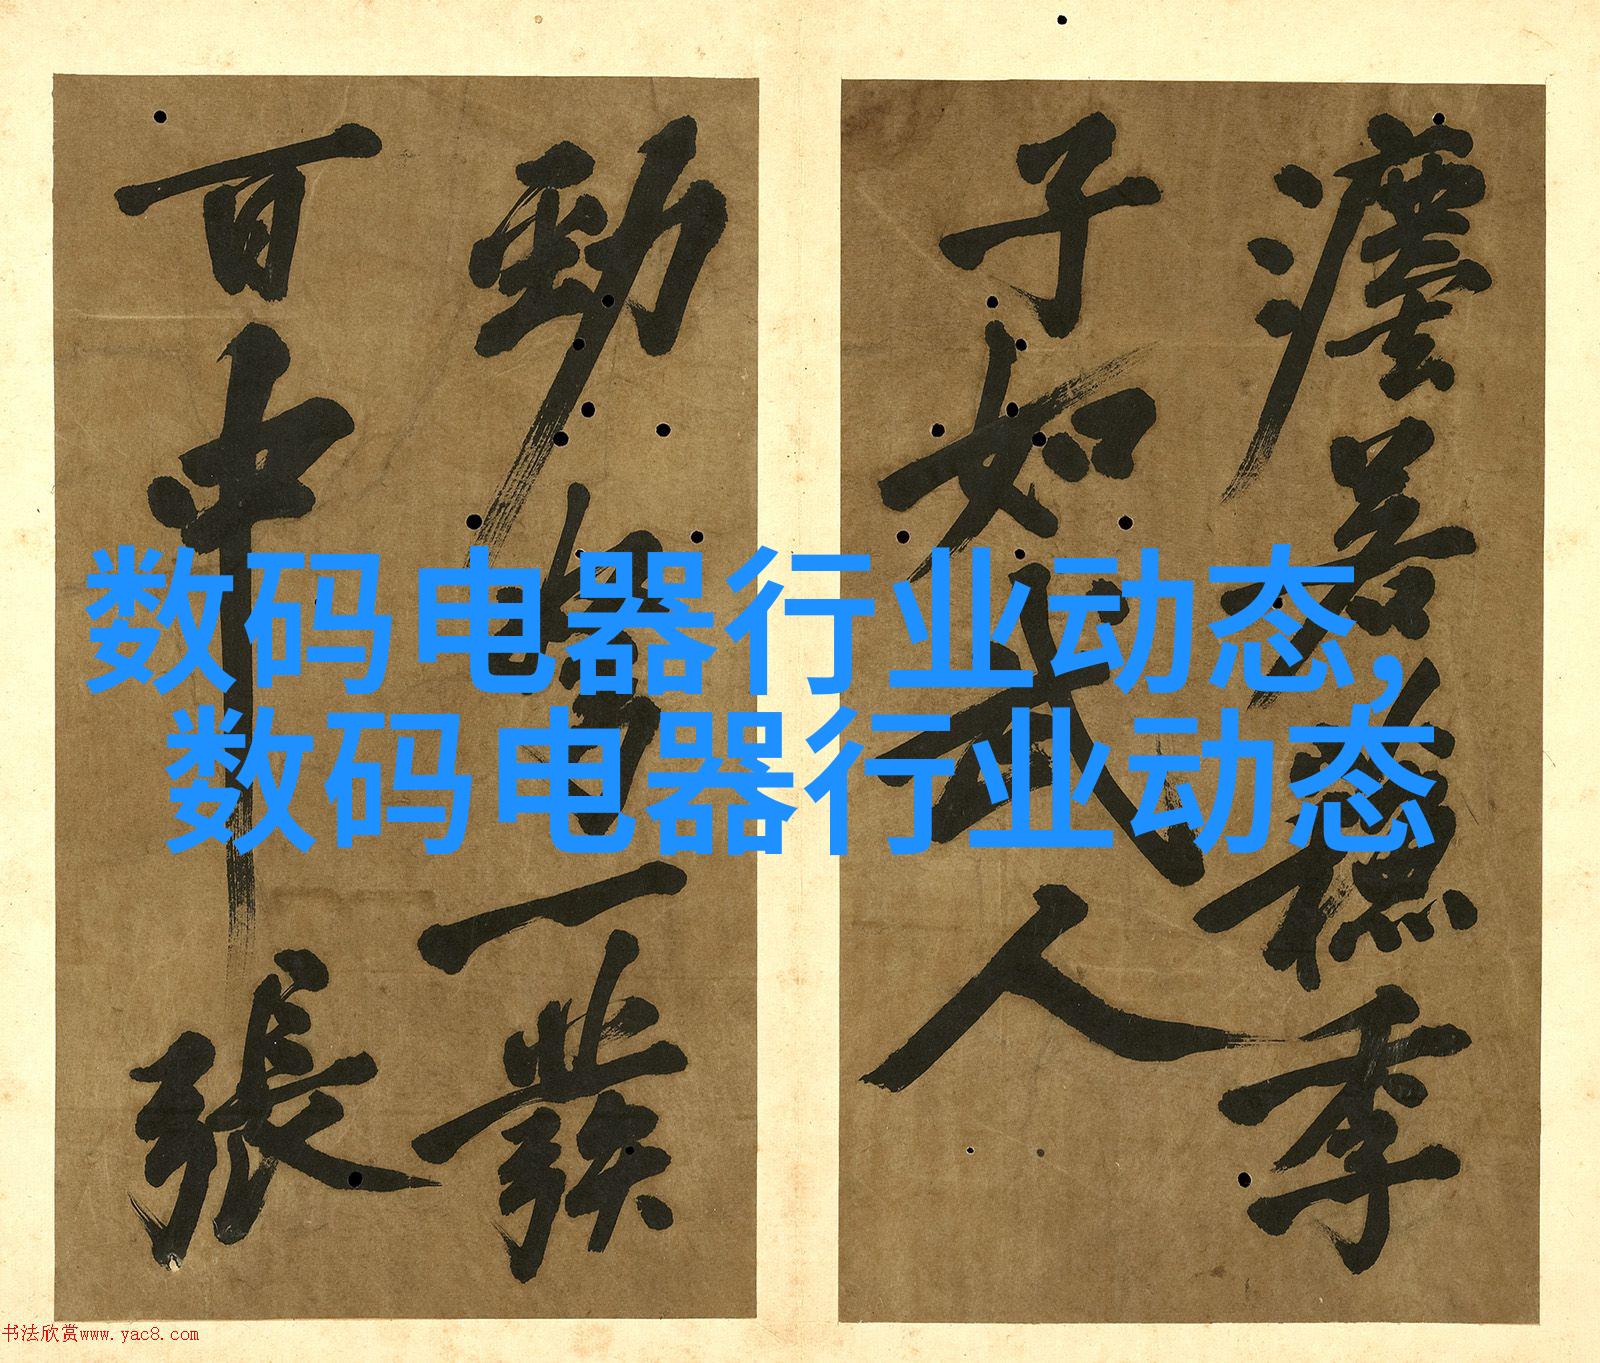 数码电器行业动态，
数码电器行业动态
瀍若季
子如武人
勁一發
百中張
书法欣赏www.yac8.com